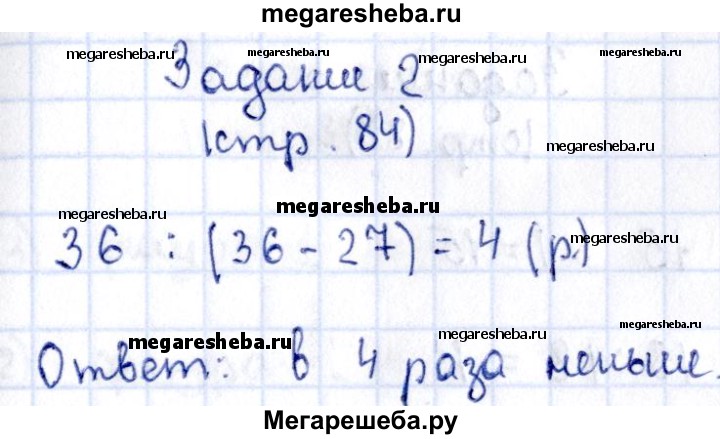 megaresheba.ru
megaresheba.ru megaresheba.ru megaresheba.ru megaresheba.ru
Задание 2
(стр. 84)
megaresheba.ru
megaresheba.ru megaresheba.ru
36 : (36 - 27) = 4 (р.)
megaresheba.ru
megaresheba.ru megaresheba.ru megaresheba.ru
Ответ: в 4 раза меньше.
Мегарешеба.ру